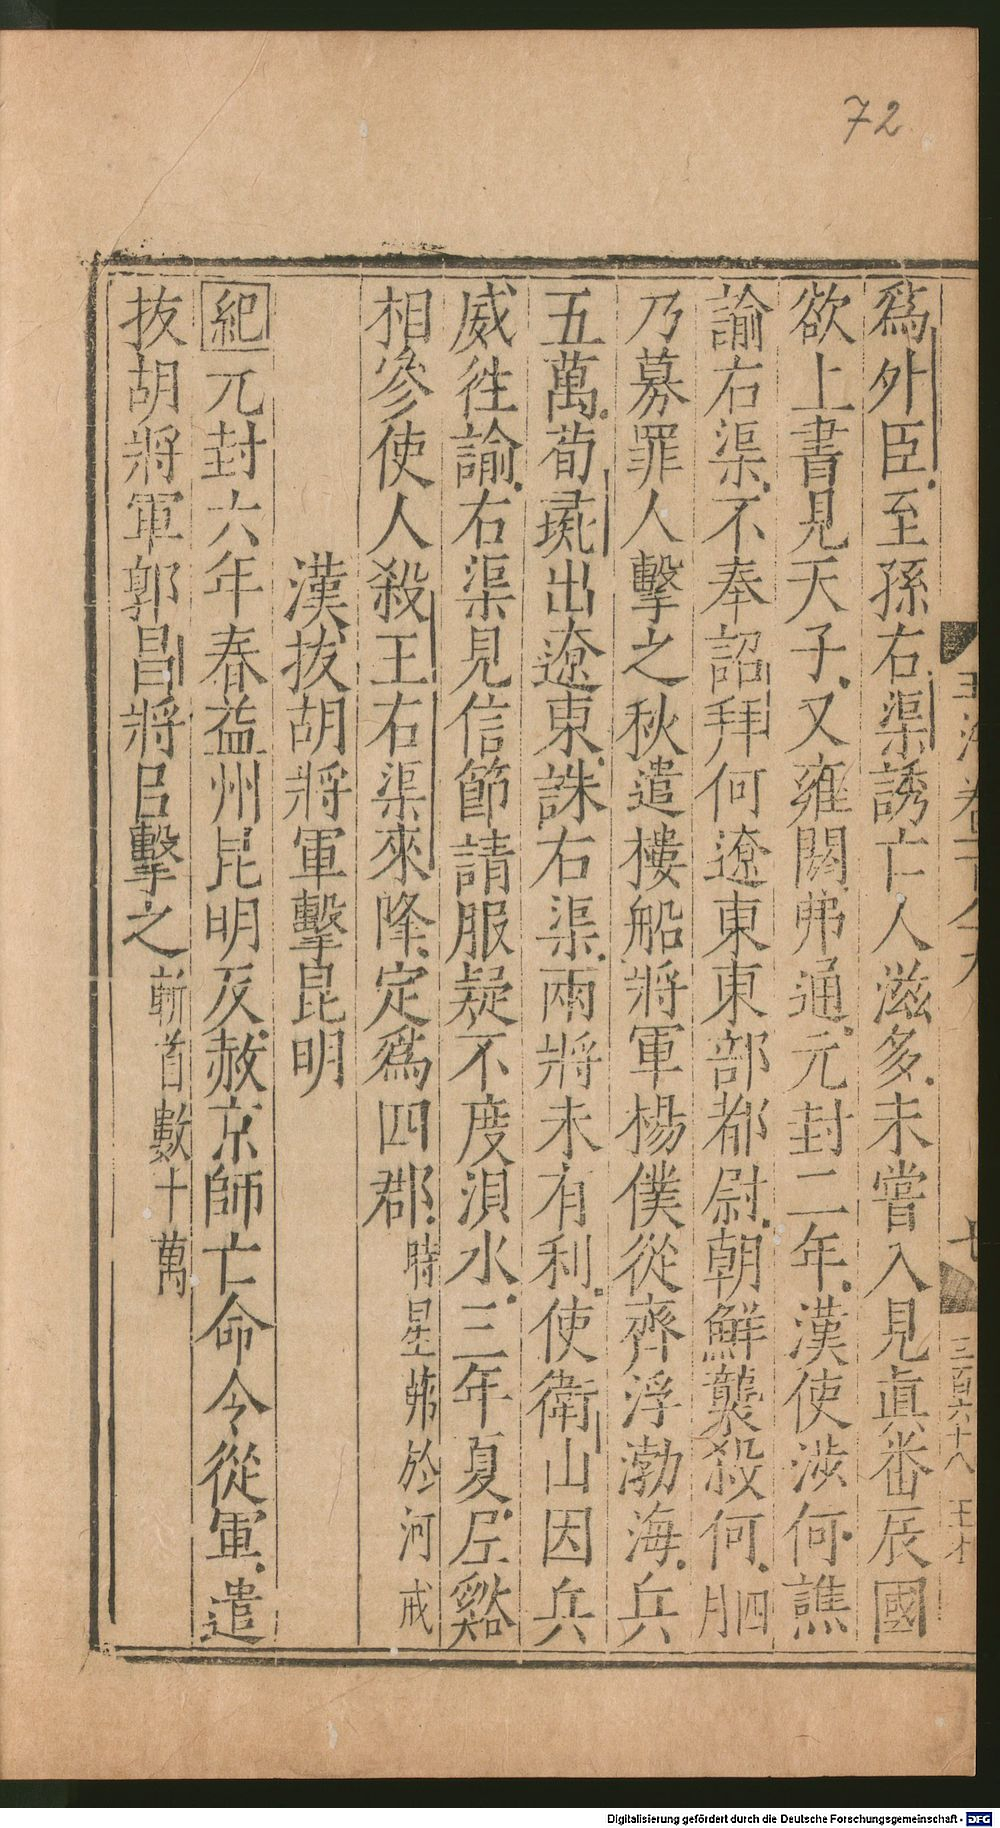 72
爲外臣至孫右渠誘亡人滋多未嘗入見眞番辰國
欲上書見天子又雍閼弗通元封二年漢使涉何譙
諭右渠不奉詔拜何遼東東部都尉朝鮮襲殺何四月
乃募罪人擊之秋遣樓船將軍楊僕從齊浮渤海兵
五萬荀彘出遼東誅右渠兩將未有利使衛山因兵
威徃諭右渠見信節請服疑不度浿水三年夏尼谿
相參使人殺王右渠來降定爲四郡時星茀於河戒
漢拔胡將軍擊昆明
紀元封六年春益州昆明反赦京師亡命令從軍遣
拔胡將軍郭昌將㠯擊之斬首數十萬
三百六十八
Digitalisierung gefördert durch die Deutsche Forschungsgemeinschaft - DFG